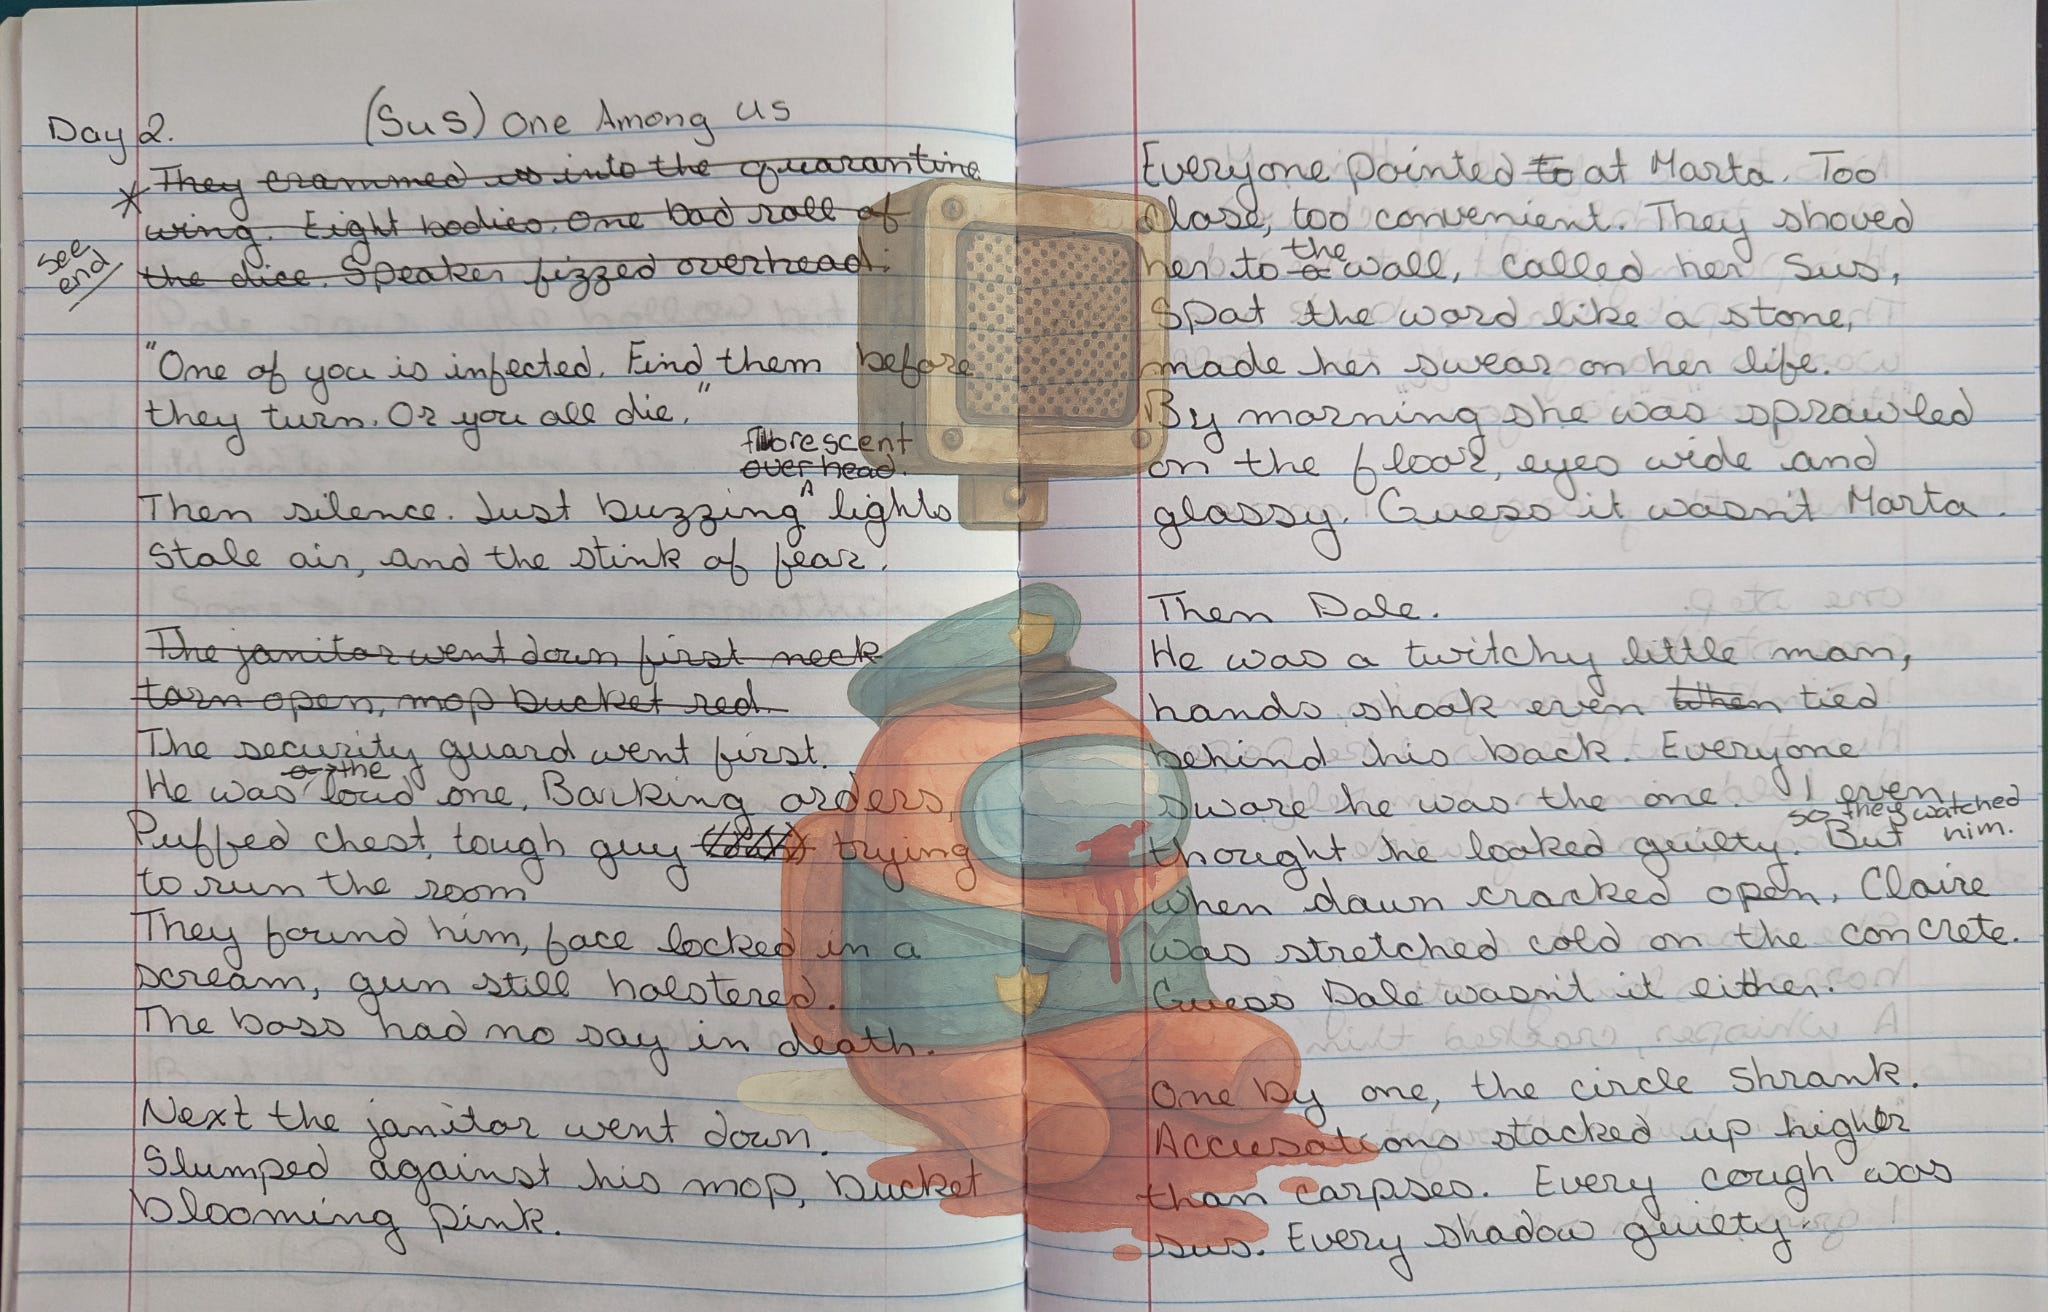 Day 2.
(Sus) One Among us
They crammed us into the quarantine
* wing. Eight bodies. One bad roll of
see end
the dice. Speaker fizzed overhead:
"One of you is infected. Find them before
they turn. Or you all die."
fluorescent
overhead.
Then silence. Just buzzing ^ lights
Stale air, and the stink of fear.
The janitor went down first neck
torn open, mop bucket red.
The security guard went first.
the
He was loud one. Barking orders,
Puffed chest, tough guy trying
to run the room
They found him, face locked in a
scream, gun still holstered.
The boss had no say in death.
Next the janitor went down.
Slumped against his mop, bucket
blooming pink.
Everyone pointed to at Marta. Too
close, too convenient. They shoved
the
her to a wall, called her sus,
Spat the word like a stone,
made her swear on her life.
By morning she was sprawled
on the floor, eyes wide and
glassy. Guess it wasn't Marta.
Then Dale.
He was a twitchy little man,
hands shook even when tied
behind his back. Everyone
swore he was the one. I even
so they watched him.
thought he looked guilty. But
when dawn cracked open, Claire
was stretched cold on the concrete.
Guess Dale wasn't it either.
One by one, the circle shrank.
Accusations stacked up higher
than corpses. Every cough was
sus. Every shadow guilty.